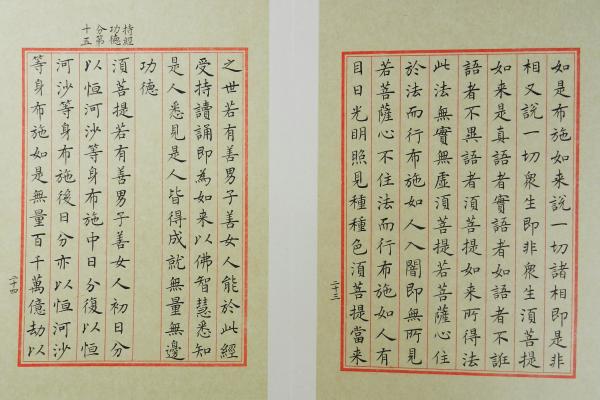 如是布施如來說一切諸相即是非
相又說一切衆生即非衆生須菩提
如來是真語者實語者如語者不誑
語者不異語者須菩提如來所得法
此法無實無虛須菩提若菩薩心住
於法而行布施如人入闇即無所見
若菩薩心不住法而行布施如人有
目日光明照見種種色須菩提當來
二十三
之世若有善男子善女人能於此經
受持讀誦即為如來以佛智慧悉知
是人悉見是人皆得成就無量無邊
功德
持經
功德
分第
十五
須菩提若有善男子善女人初日分
以恒河沙等身布施中日分復以恒
河沙等身布施後日分亦以恒河沙
等身布施如是無量百千萬億劫以
二十四